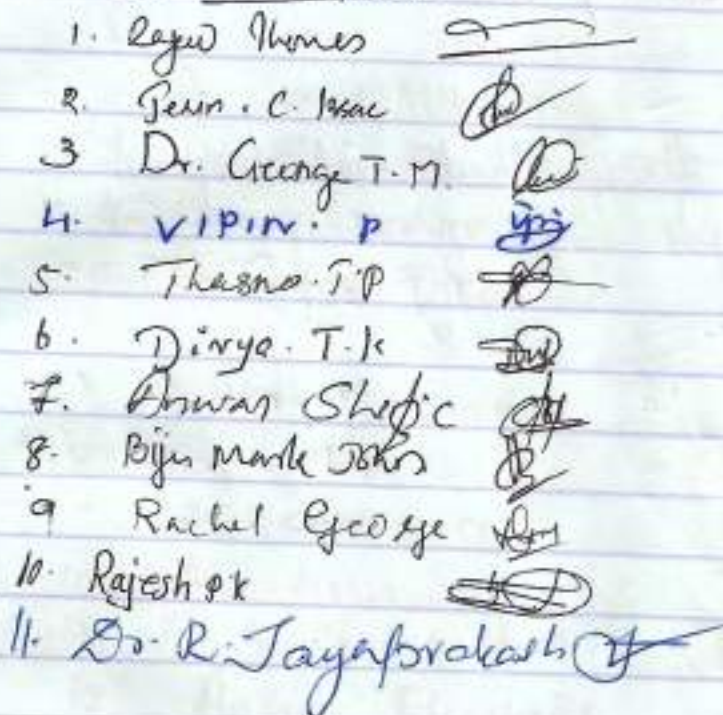 1. Rajeev Thomas
2. Jerin. C. Issac
3 Dr. George T.M.
4. VIPIN. P
5. Thasno. T.P
6. Divya. T.K
7. Anwar Shefic
8. Biju Mark John
9 Rachel George
10. Rajesh PK
11. Dr. R. Jayaprakash